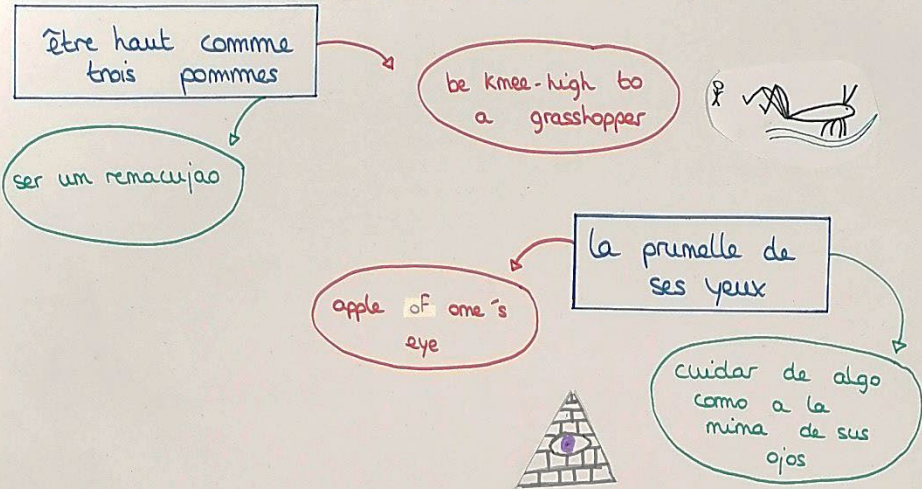 être haut comme
trois pommes
be knee-high to
a grasshopper
ser un renacujao
la prunelle de
ses yeux
apple of one's
eye
cuidar de algo
como a la
nina de sus
ojos